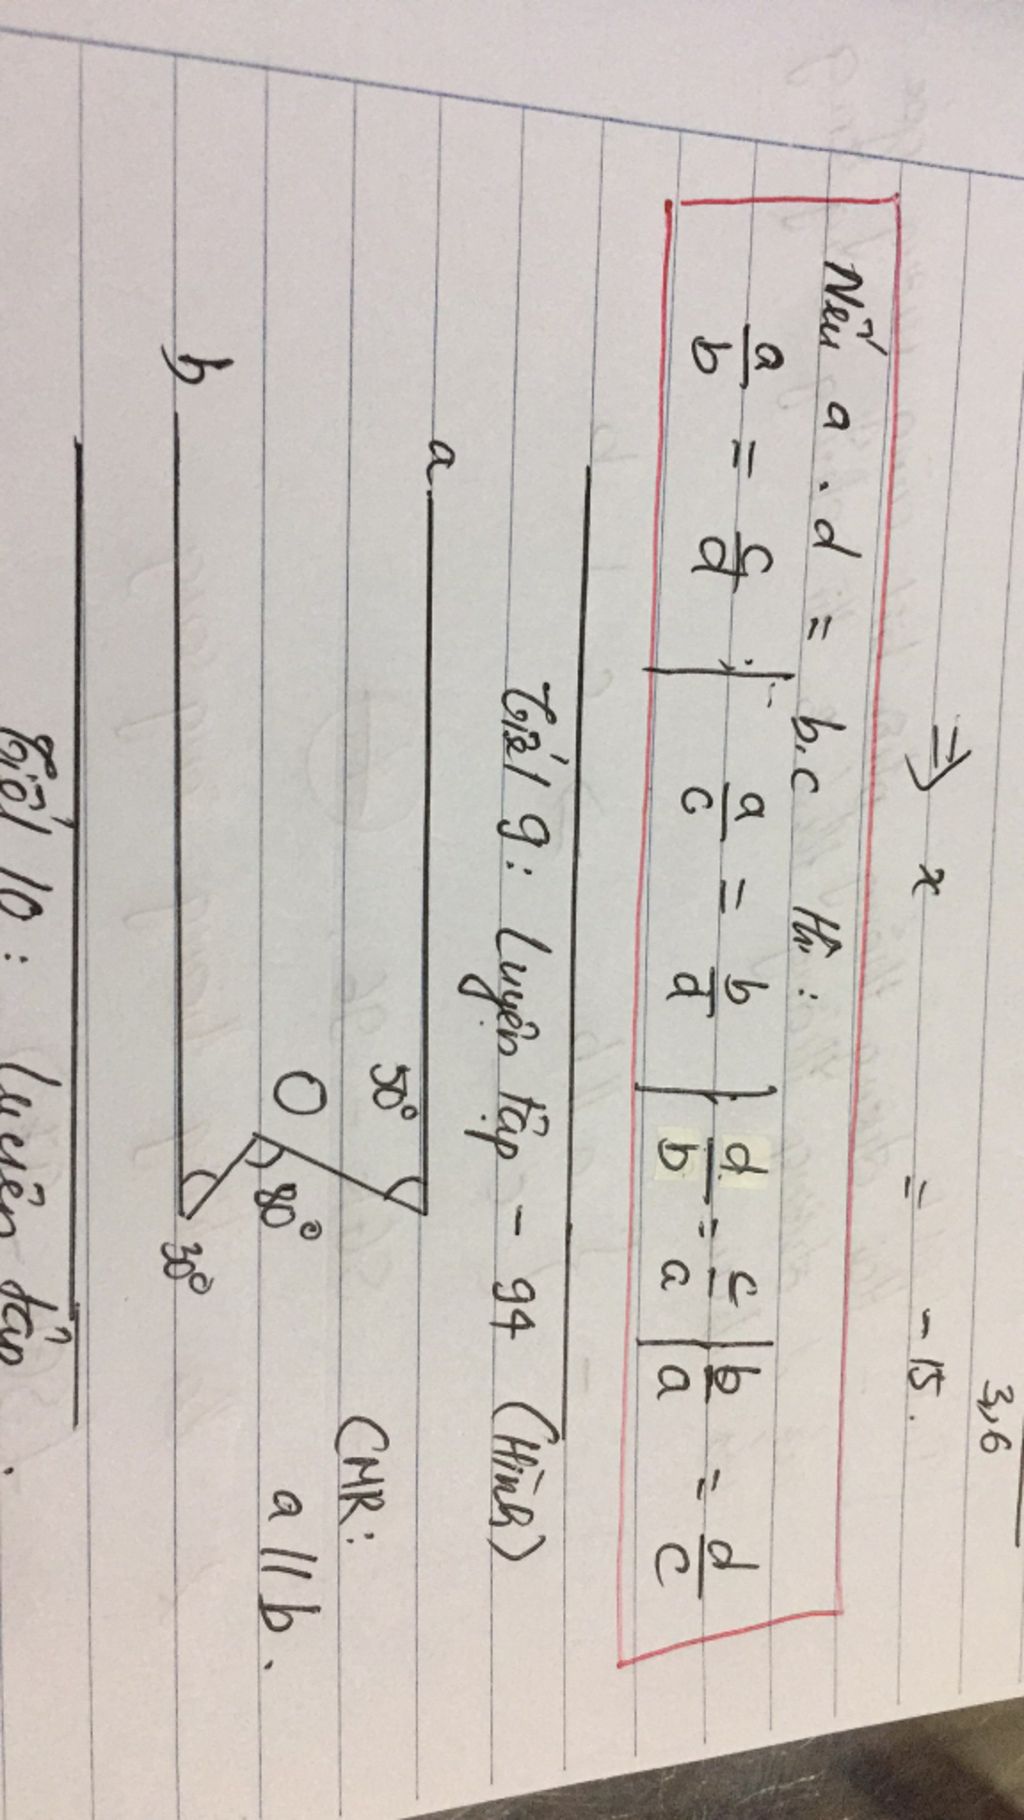 3,6
⇒ x = -15.
Nếu a . d = b.c thì :
a/b = c/d ; a/c = b/d ; d/b = c/a ; b/a = d/c
Tiết 9: Luyện tập - 94 (Hình)
a
50°
CMR:
O
80°
a // b.
b
30°
Tiết 10 : Luyện tập .